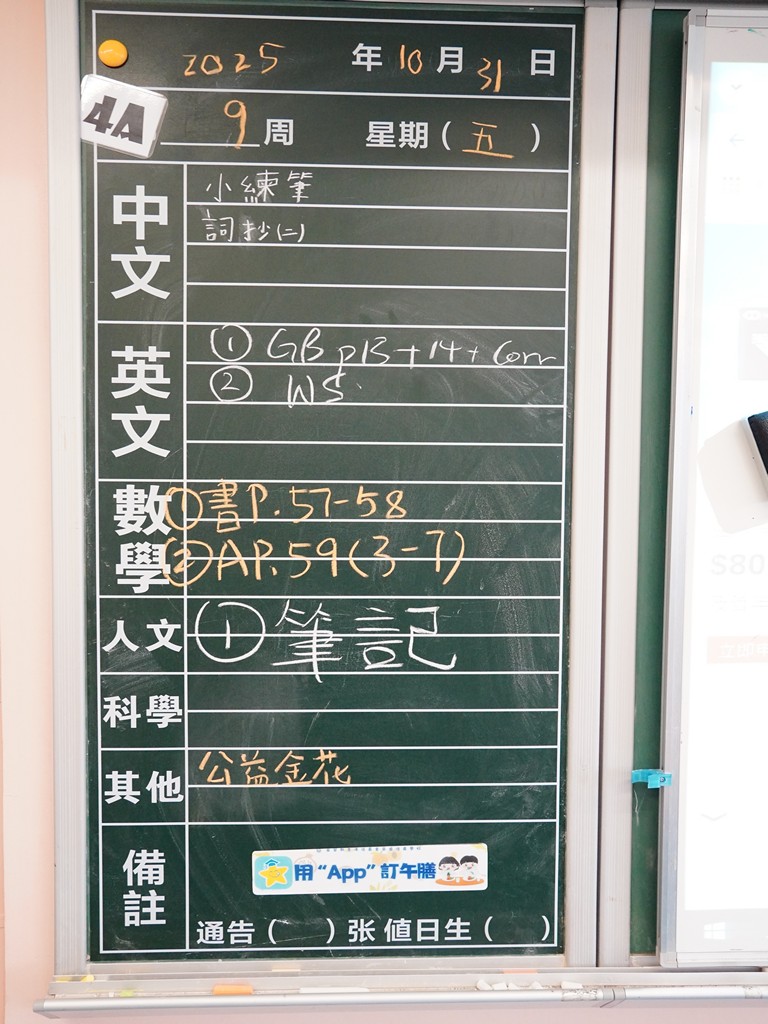 2025 年 10 月 31 日
4A
9 周 星期 ( 五 )
中文
小練筆
詞抄(二)
英文
① GB p13 + 14 + Corr
② WS
數學
①書P.57-58
②AP.59(3-7)
人文
①筆記
科學
其他
公益金花
備註
用 “App” 訂午膳
通告 ( ) 张 值日生 ( )
S80